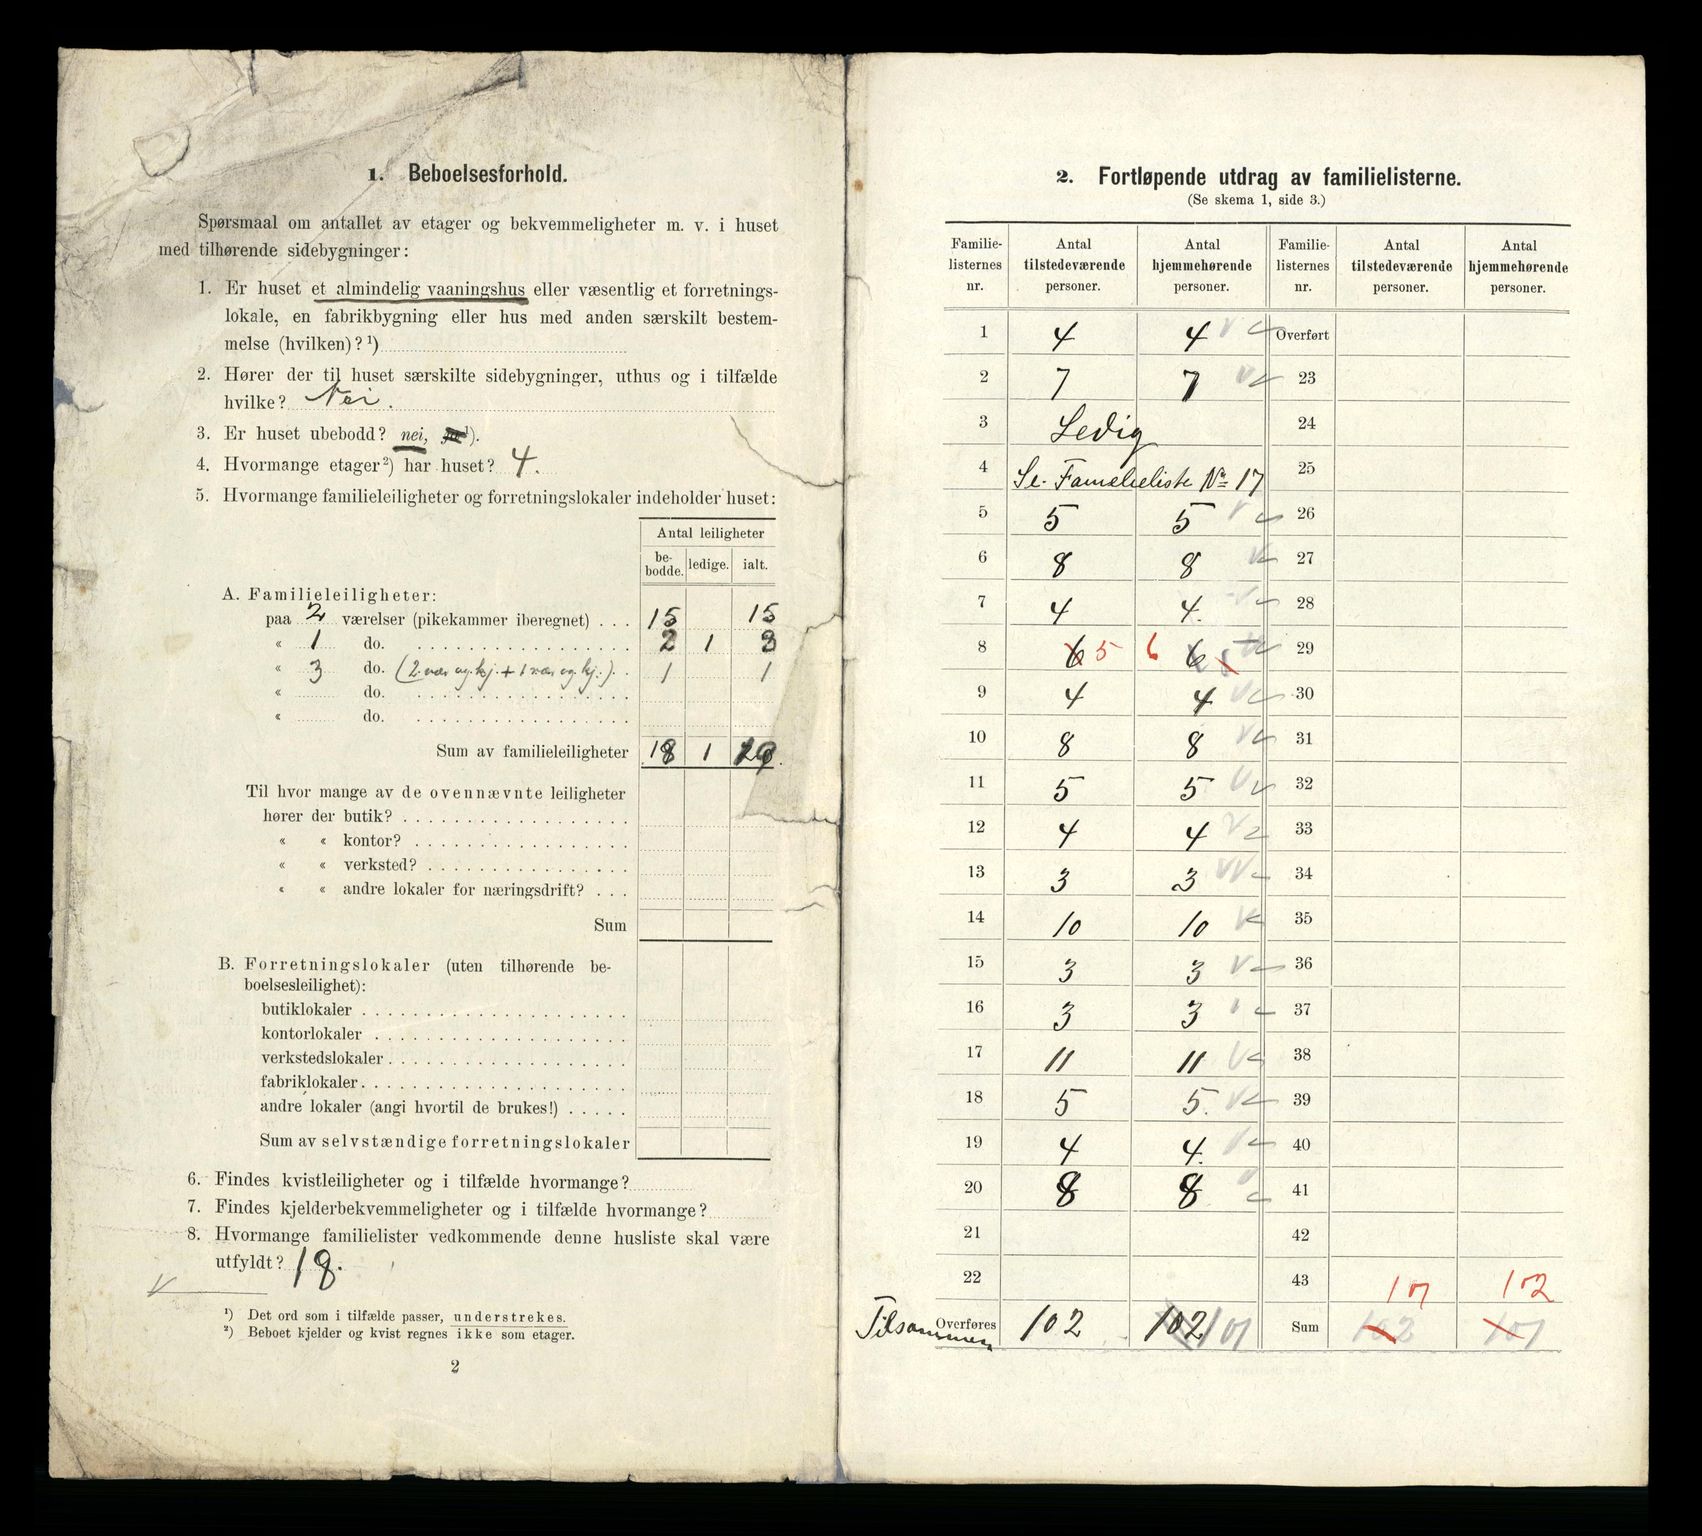 1. Beboelsesforhold.
Spørsmaal om antallet av etager og bekvemmeligheter m. v. i huset
med tilhørende sidebygninger:
1. Er huset et almindelig vaaningshus eller væsentlig et forretnings-
lokale, en fabrikbygning eller hus med anden særskilt bestem-
melse (hvilken)? ¹)
2. Hører der til huset særskilte sidebygninger, uthus og i tilfælde
hvilke? Nei.
3. Er huset ubebodd? nei, ja ¹).
4. Hvormange etager ²) har huset? 4.
5. Hvormange familieleiligheter og forretningslokaler indeholder huset:
Antal leiligheter
be-
bodde. ledige. ialt.
A. Familieleiligheter:
paa 2 værelser (pikekammer iberegnet) . . . 15 15
« 1 do. 2 1 3
« 3 do. (2 vær og kj. + 1 vær og kj.) 1 1
« do.
« do.
Sum av familieleiligheter 18 1 19
Til hvor mange av de ovennævnte leiligheter
hører der butik?
« « kontor?
« « verksted?
« « andre lokaler for næringsdrift?
Sum
B. Forretningslokaler (uten tilhørende be-
boelsesleilighet):
butiklokaler
kontorlokaler
verkstedslokaler
fabriklokaler
andre lokaler (angi hvortil de brukes!)
Sum av selvstændige forretningslokaler
6. Findes kvistleiligheter og i tilfælde hvormange?
7. Findes kjelderbekvemmeligheter og i tilfælde hvormange?
8. Hvormange familielister vedkommende denne husliste skal være
utfyldt? 18.
¹) Det ord som i tilfælde passer, understrekes.
²) Beboet kjelder og kvist regnes ikke som etager.
2
2. Fortløpende utdrag av familielisterne.
(Se skema 1, side 3.)
Familie-
listernes
nr. Antal
tilstedeværende
personer. Antal
hjemmehørende
personer. Familie-
listernes
nr. Antal
tilstedeværende
personer. Antal
hjemmehørende
personer.
1 4 4 Overført
2 7 7 23
3 Ledig 24
4 Se. Familieliste No 17 25
5 5 5 26
6 8 8 27
7 4 4. 28
8 6 5 6 6 5 29
9 4 4 30
10 8 8 31
11 5 5 32
12 4 4 33
13 3 3 34
14 10 10 35
15 3 3 36
16 3 3 37
17 11 11 38
18 5 5. 39
19 4 4. 40
20 8 8 41
21 42
22 43 101 102
Tilsammen Overføres 102 102 101 Sum 102 101